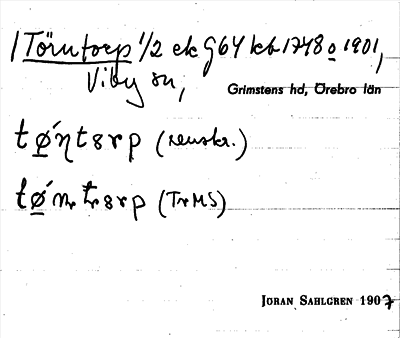 /Törntorp 1/2 ek G64 kb 1748 o 1901,
Viby sn,
Grimstens hd, Örebro län
tǿŋtɘrp (renskr.)
tǿn tɘrp (TrMS)
JÖRAN SAHLGREN 1907